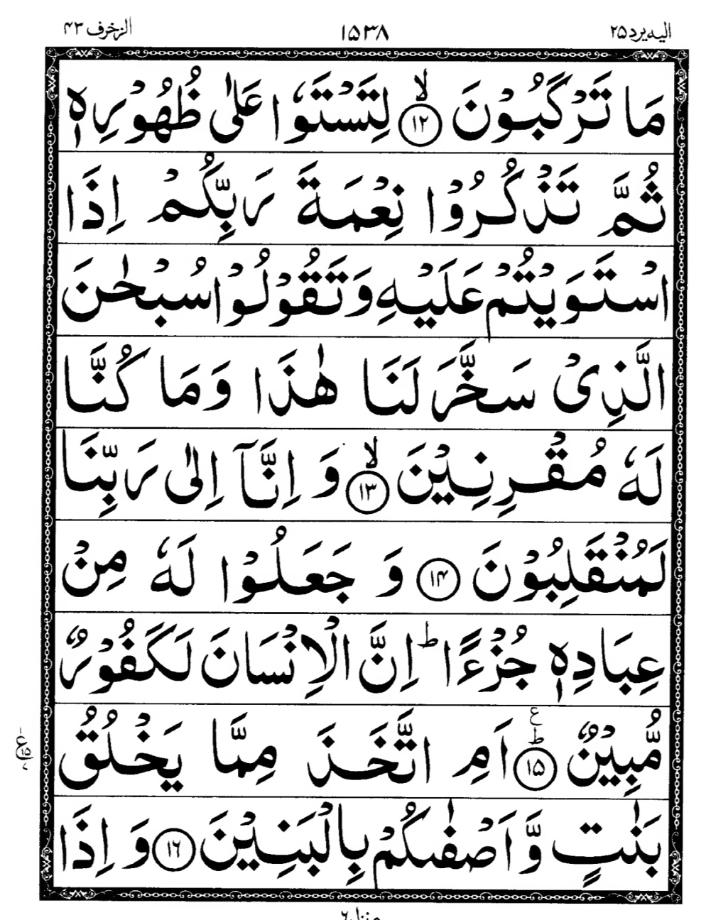 الیه یرد ۲۵
۱۵۳۸
الزخرف ۴۳
مَا تَرْكَبُوْنَ ۙ﴿۱۲﴾ لِتَسْتَوٗا عَلٰی ظُهُوْرِهٖ
ثُمَّ تَذْكُرُوْا نِعْمَةَ رَبِّكُمْ اِذَا
اسْتَوَیْتُمْ عَلَیْهِ وَتَقُوْلُوْا سُبْحٰنَ
الَّذِیْ سَخَّرَ لَنَا هٰذَا وَمَا كُنَّا
لَهٗ مُقْرِنِیْنَ ۙ﴿۱۳﴾ وَ اِنَّاۤ اِلٰی رَبِّنَا
لَمُنْقَلِبُوْنَ ﴿۱۴﴾ وَ جَعَلُوْا لَهٗ مِنْ
عِبَادِهٖ جُزْءًا ؕ اِنَّ الْاِنْسَانَ لَكَفُوْرٌ
مُّبِیْنٌ ؕ۠﴿۱۵﴾ اَمِ اتَّخَذَ مِمَّا یَخْلُقُ
بَنٰتٍ وَّ اَصْفٰىكُمْ بِالْبَنِیْنَ ﴿۱۶﴾ وَ اِذَا
منزل ۶